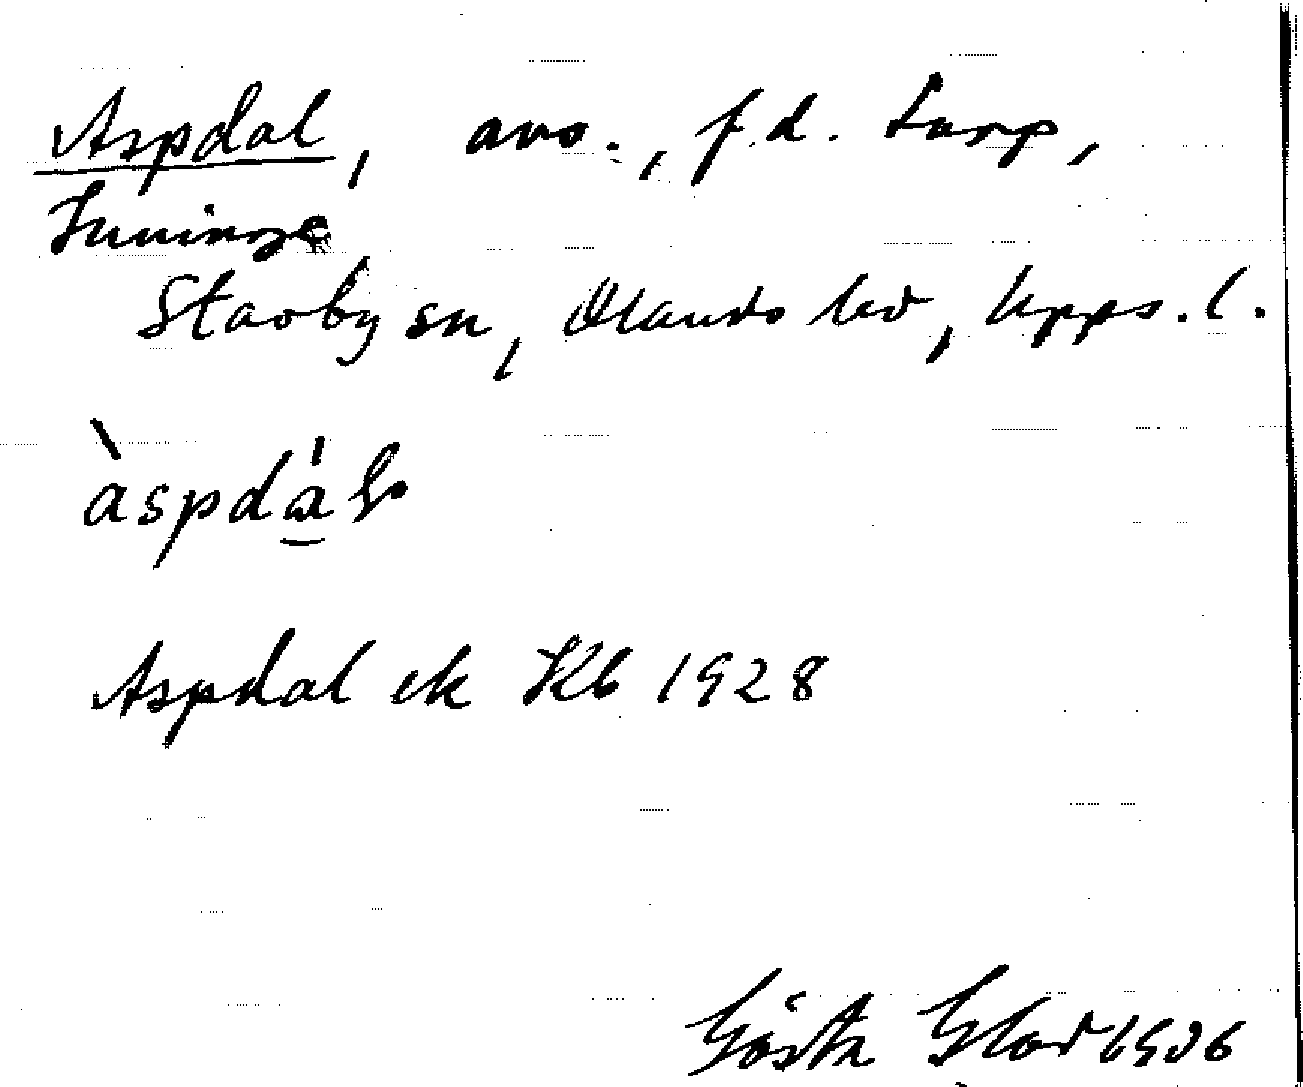 Aspdal, avs., f.d. torp,
Stavby sn, Olands hd, Upps. l.
Aspdal ek Kb 1928
Gösta 1936